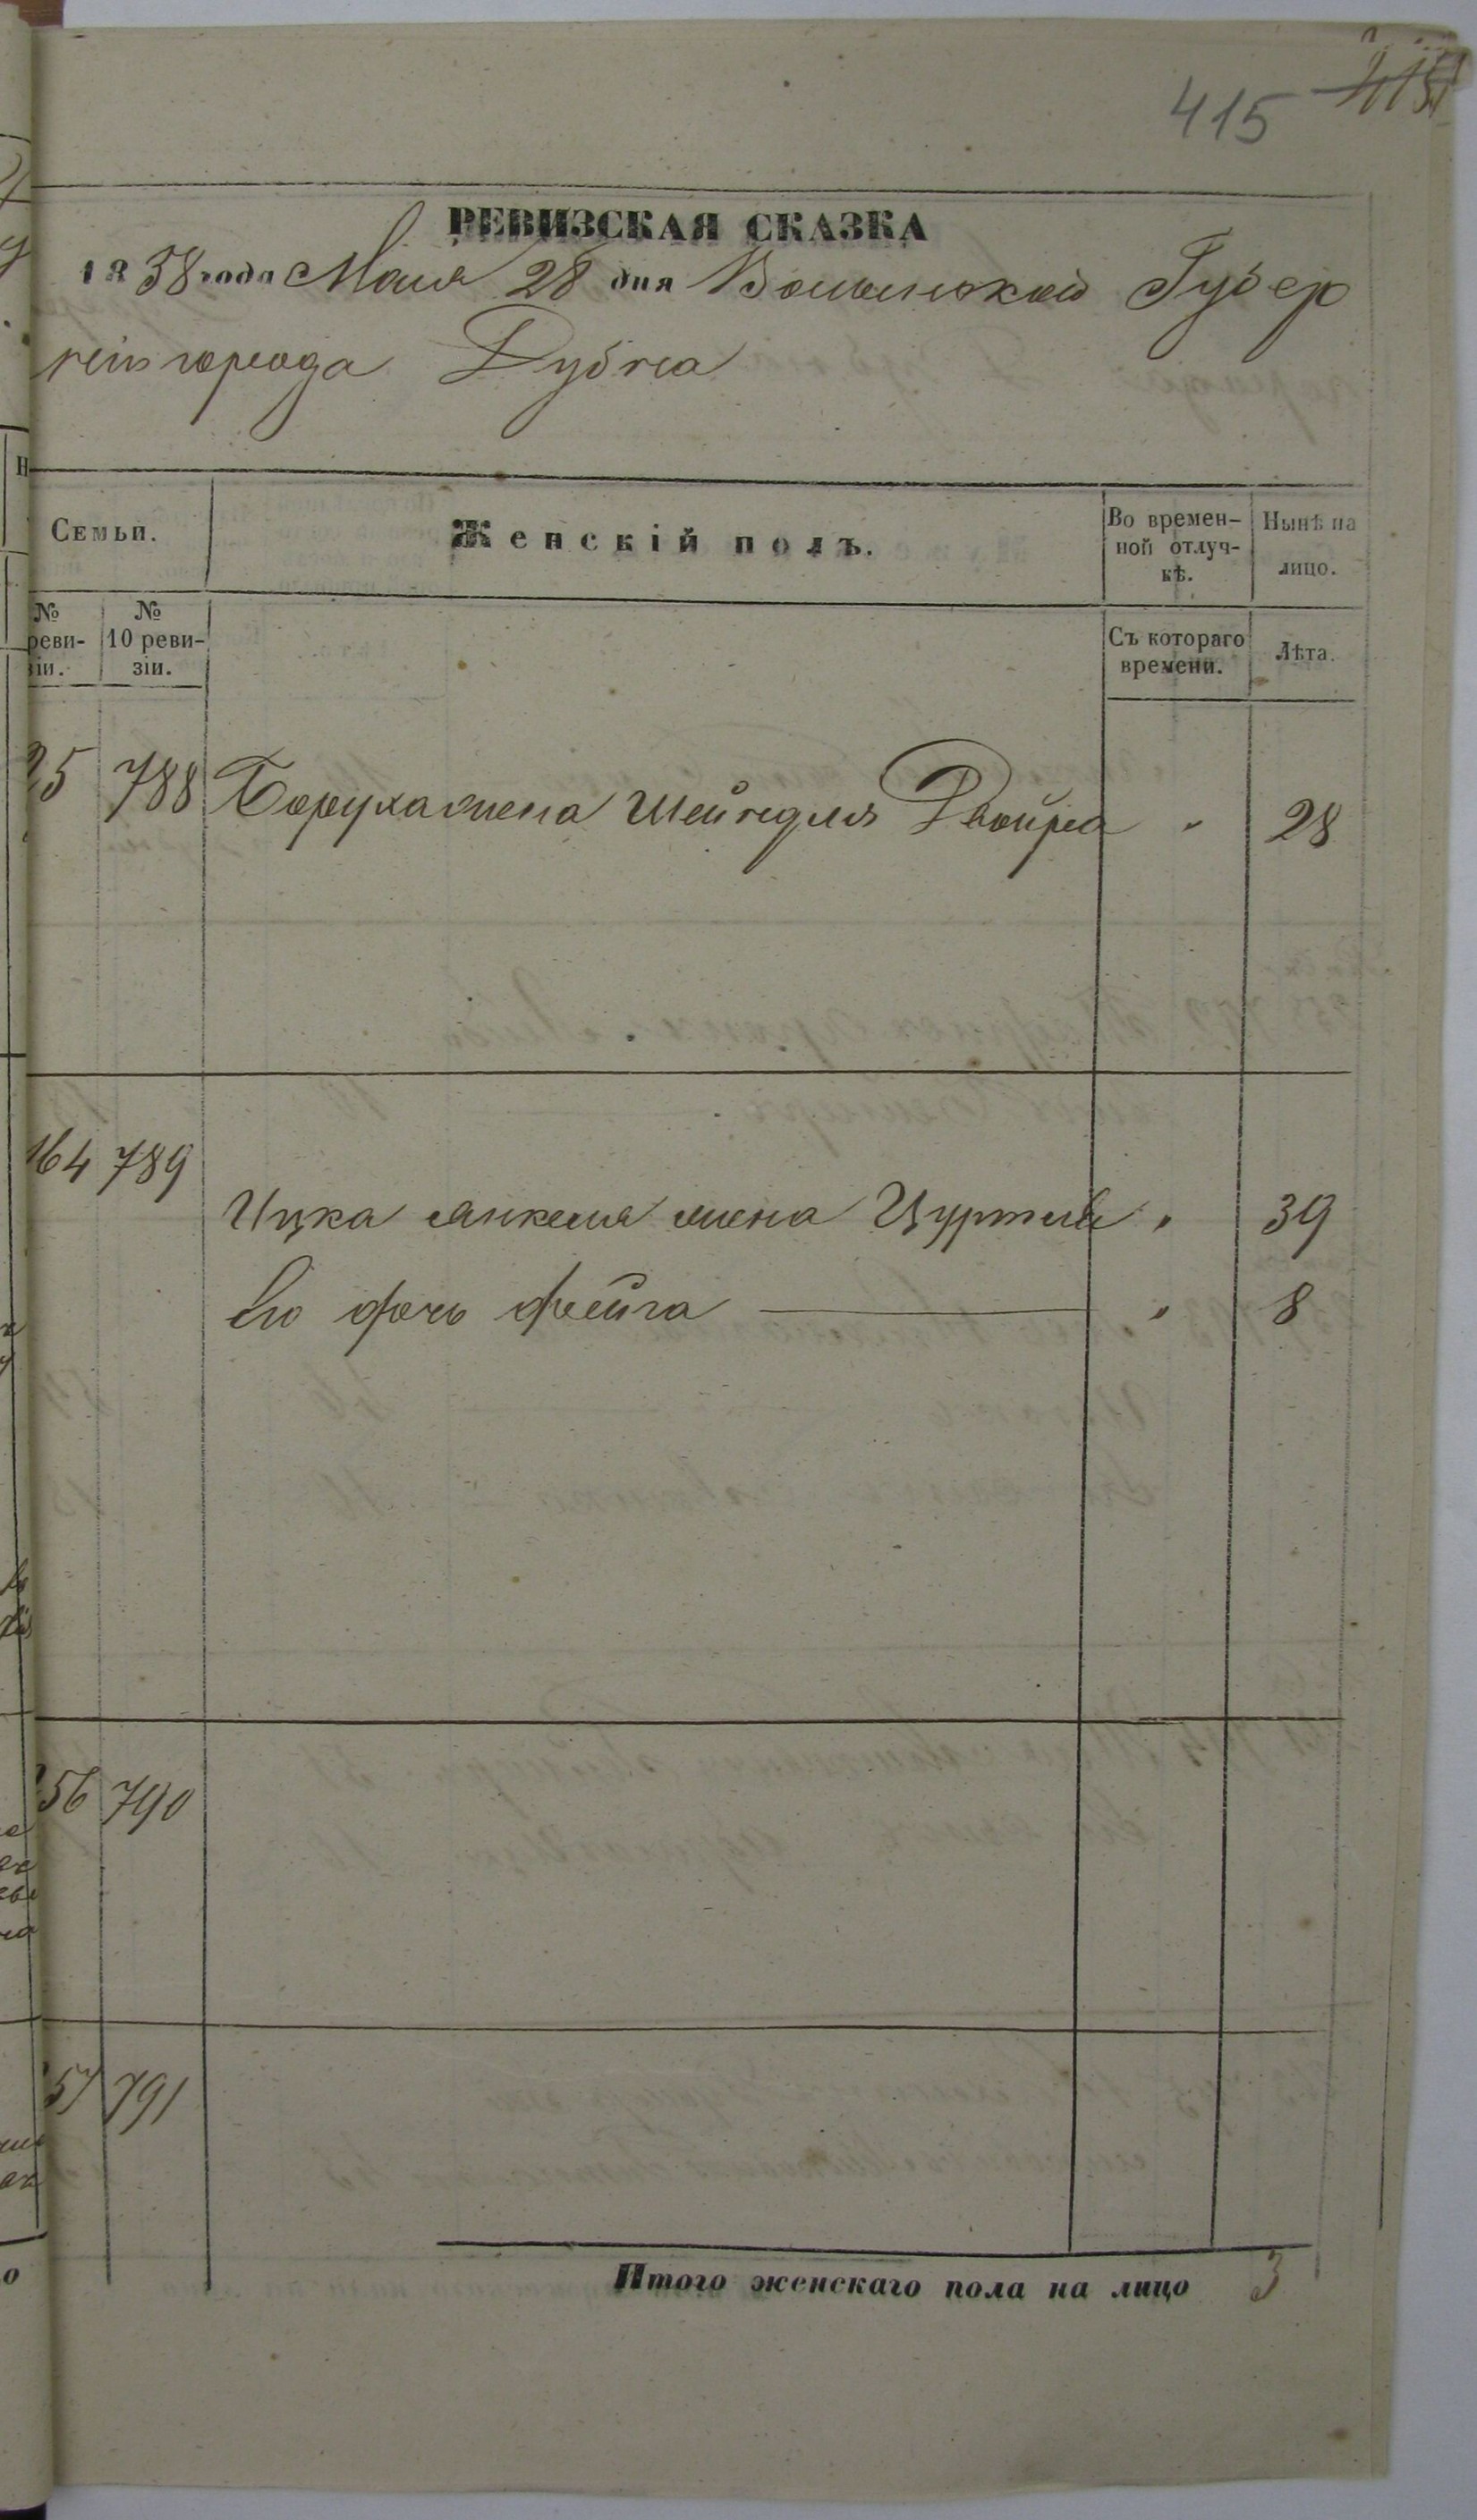 415
РЕВИЗСКАЯ СКАЗКА
1858 года Маія 28 дня Волынской Губер
ніи города Дубна
Семьи.
Женскій полъ.
Во времен-
ной отлуч-
кѣ.
Нынѣ на
лицо.
№
реви-
зіи.
№
10 реви-
зіи.
Съ котораго
времени.
Лѣта.
25 788 Боруха жена Шейндля Двойра " 28
164 789
Ицка Янкеля жена Цуртель " 39
Его дочь Фейга " 8
256 790
57 791
Итого женскаго пола на лицо 3